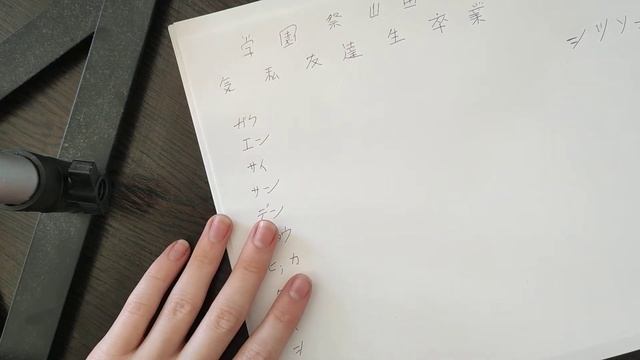 学園祭山田
気私友達生卒業
シツソ
ガク
エン
サイ
サン
デン
ョウ
カ
シ